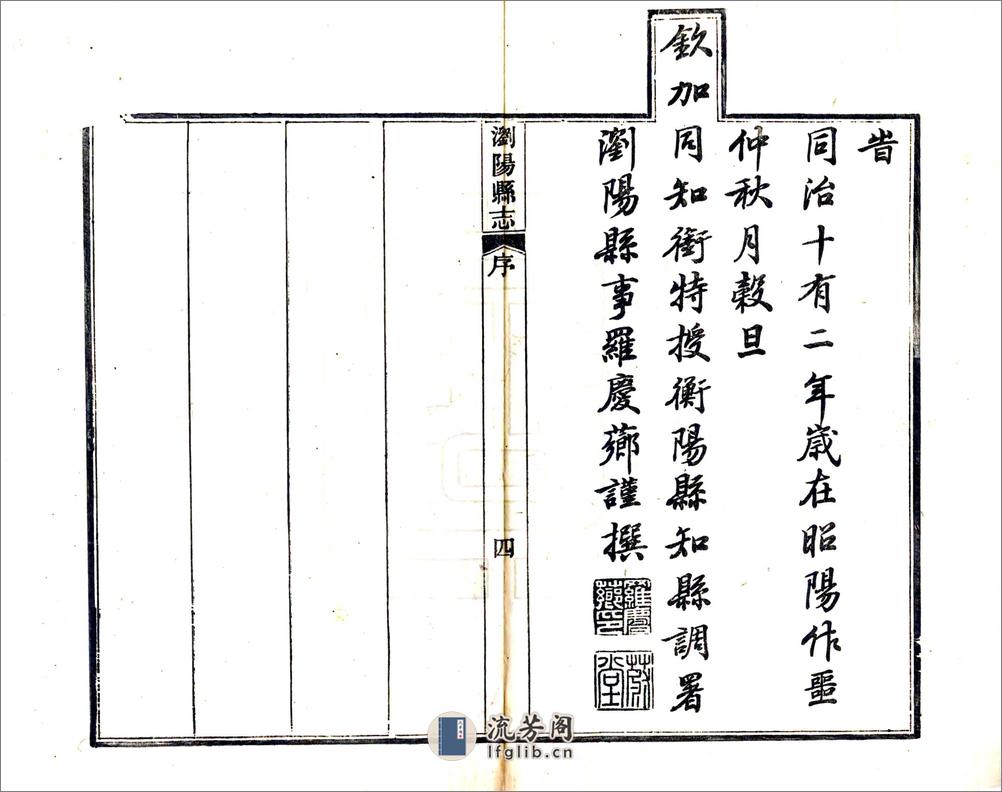 旹
同治十有二年歲在昭陽作噩
仲秋月穀旦
欽加同知銜特授衡陽縣知縣調署
瀏陽縣事羅慶薌謹撰
羅慶薌印
瀏陽縣志
序
四
流芳阁
lfglib.cn